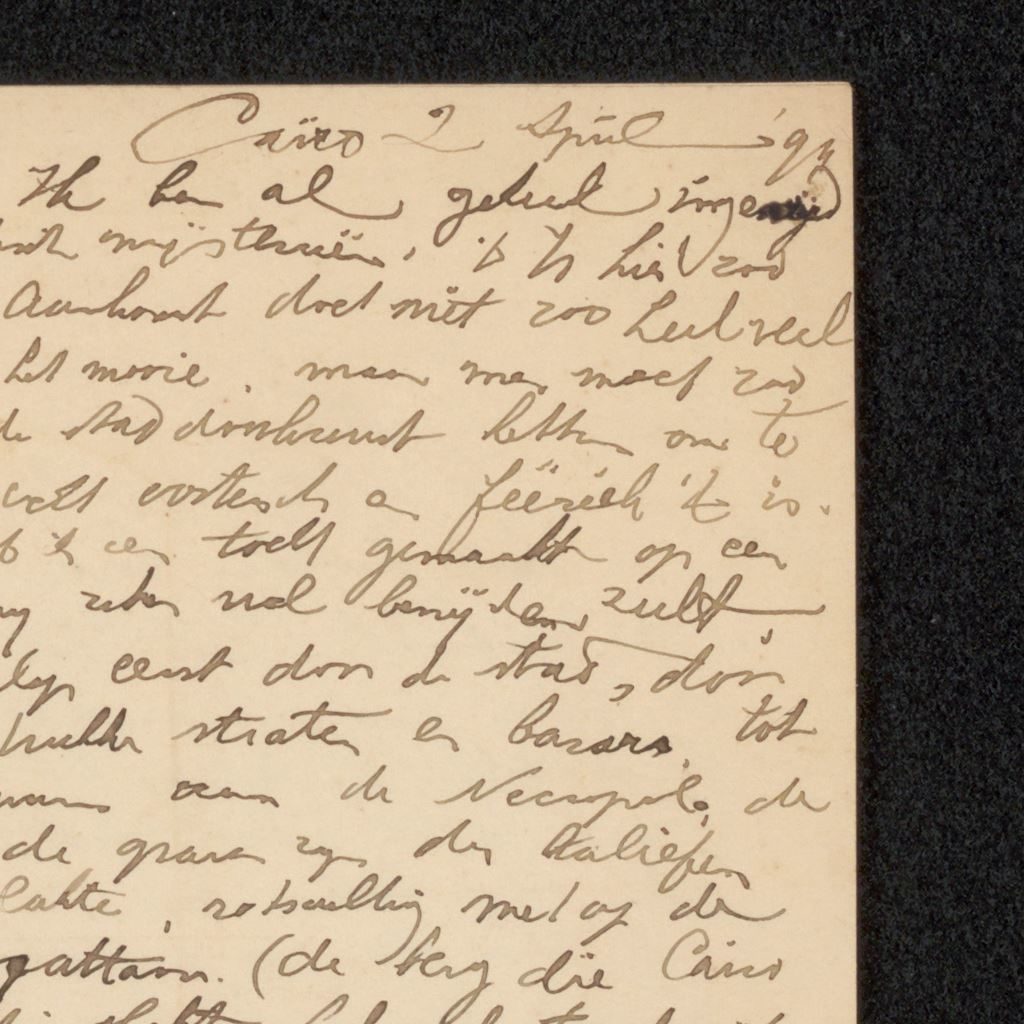 Caïro 2 April '94
Ik ben al geheel ingewijd
mysteriën, 't is hier zoo
Aankomst doet niet zoo heel veel
het mooie, maar men moet zoo
de stad doorkruist hebben om te
echt oostersch en feëeriek 't is.
ik een tocht gemaakt op een
zeker wel benijden zult,
eerst door de stad, door
straten en bazars, tot
aan de Necropolis, de
de graven zijn der Kaliefen
rotsachtig met op de
kattam. (de berg die Caïro